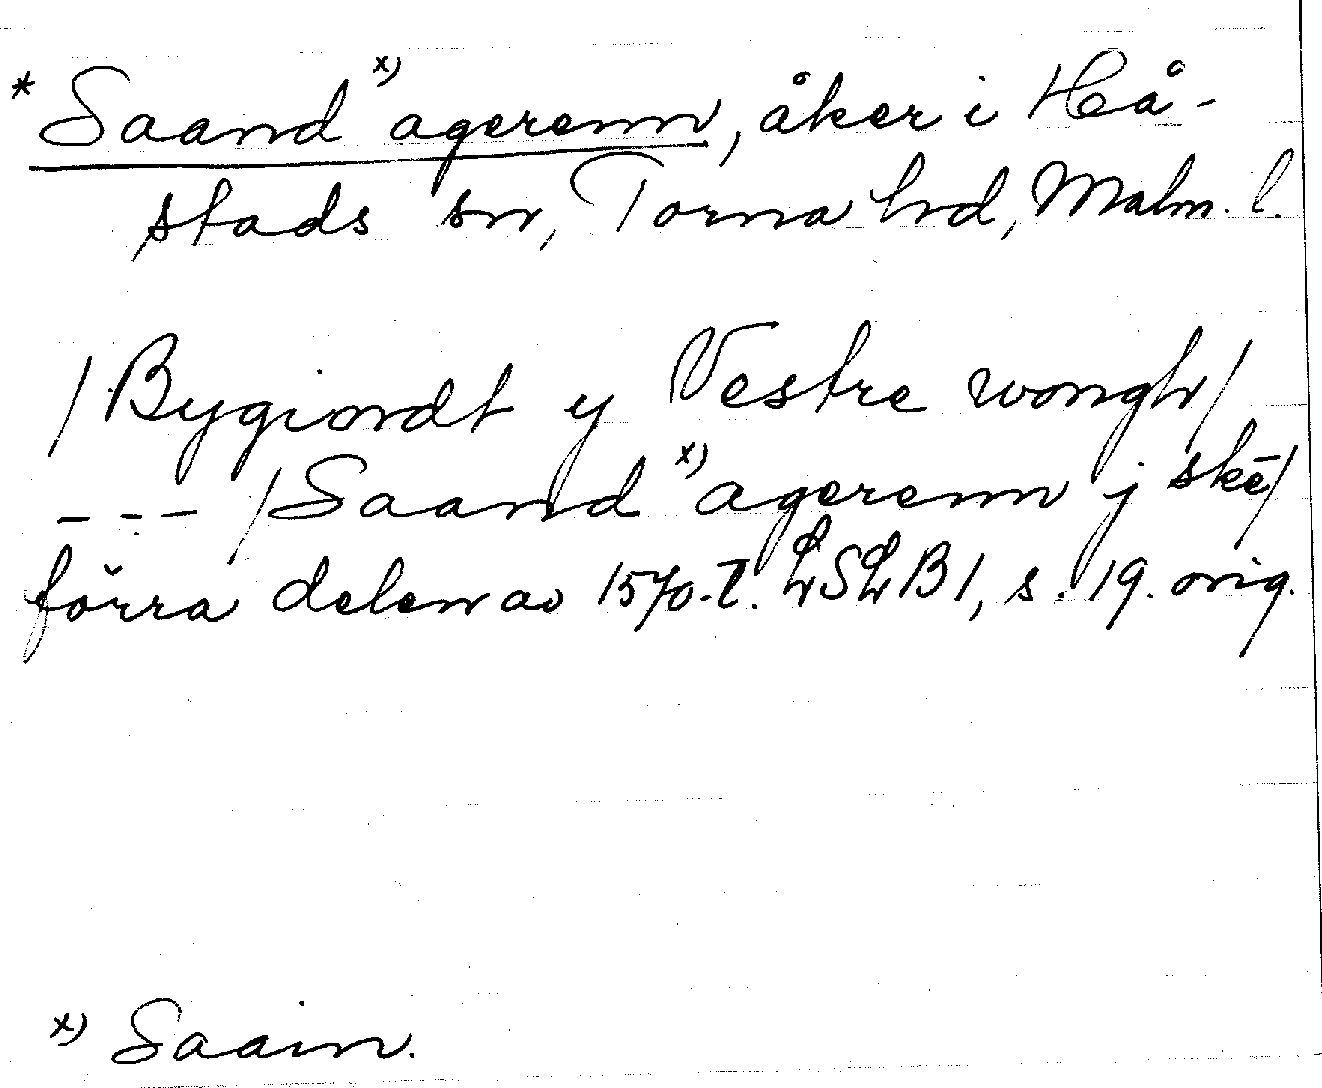 * Saand x) agerenn, åker i Hå-
stads sn, Torna hd, Malm. l.
/Bygiordt y Vestre wongh/
--- /Saand x) agerenn j skē/
förra delen av 1570-t. LSLB1, s. 19. orig.
x) Saain.